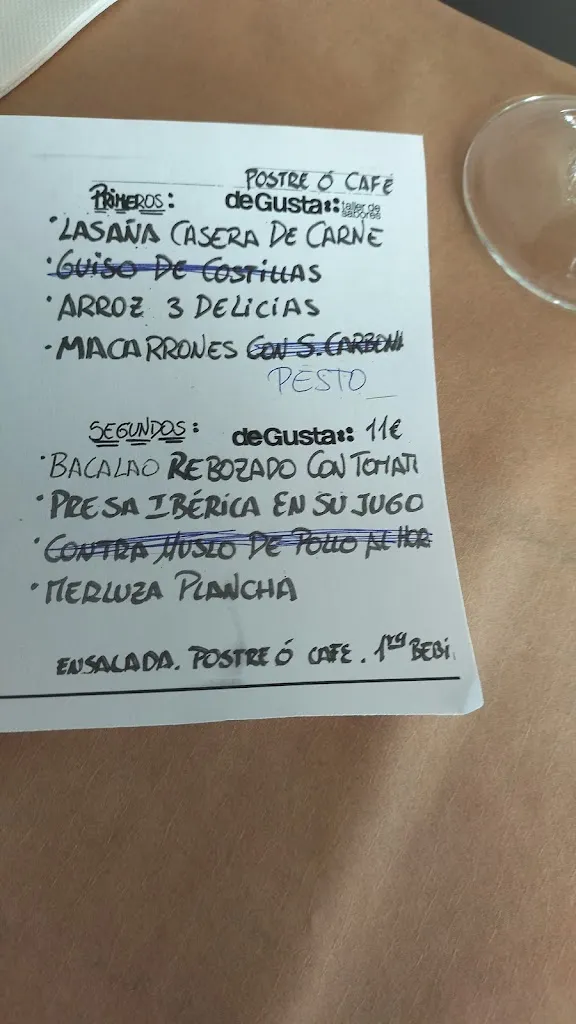 POSTRE Ó CAFÉ
PRIMEROS: deGusta: taller de sabores
· LASAÑA CASERA DE CARNE
· GUISO DE COSTILLAS
· ARROZ 3 DELICIAS
· MACARRONES CON S. CARBON
PESTO
SEGUNDOS: deGusta: 11€
· BACALAO REBOZADO CON TOMATE
· PRESA IBÉRICA EN SU JUGO
· CONTRA MUSLO DE POLLO AL HOR
· MERLUZA PLANCHA
ENSALADA. POSTRE Ó CAFE. 1ra BEBI